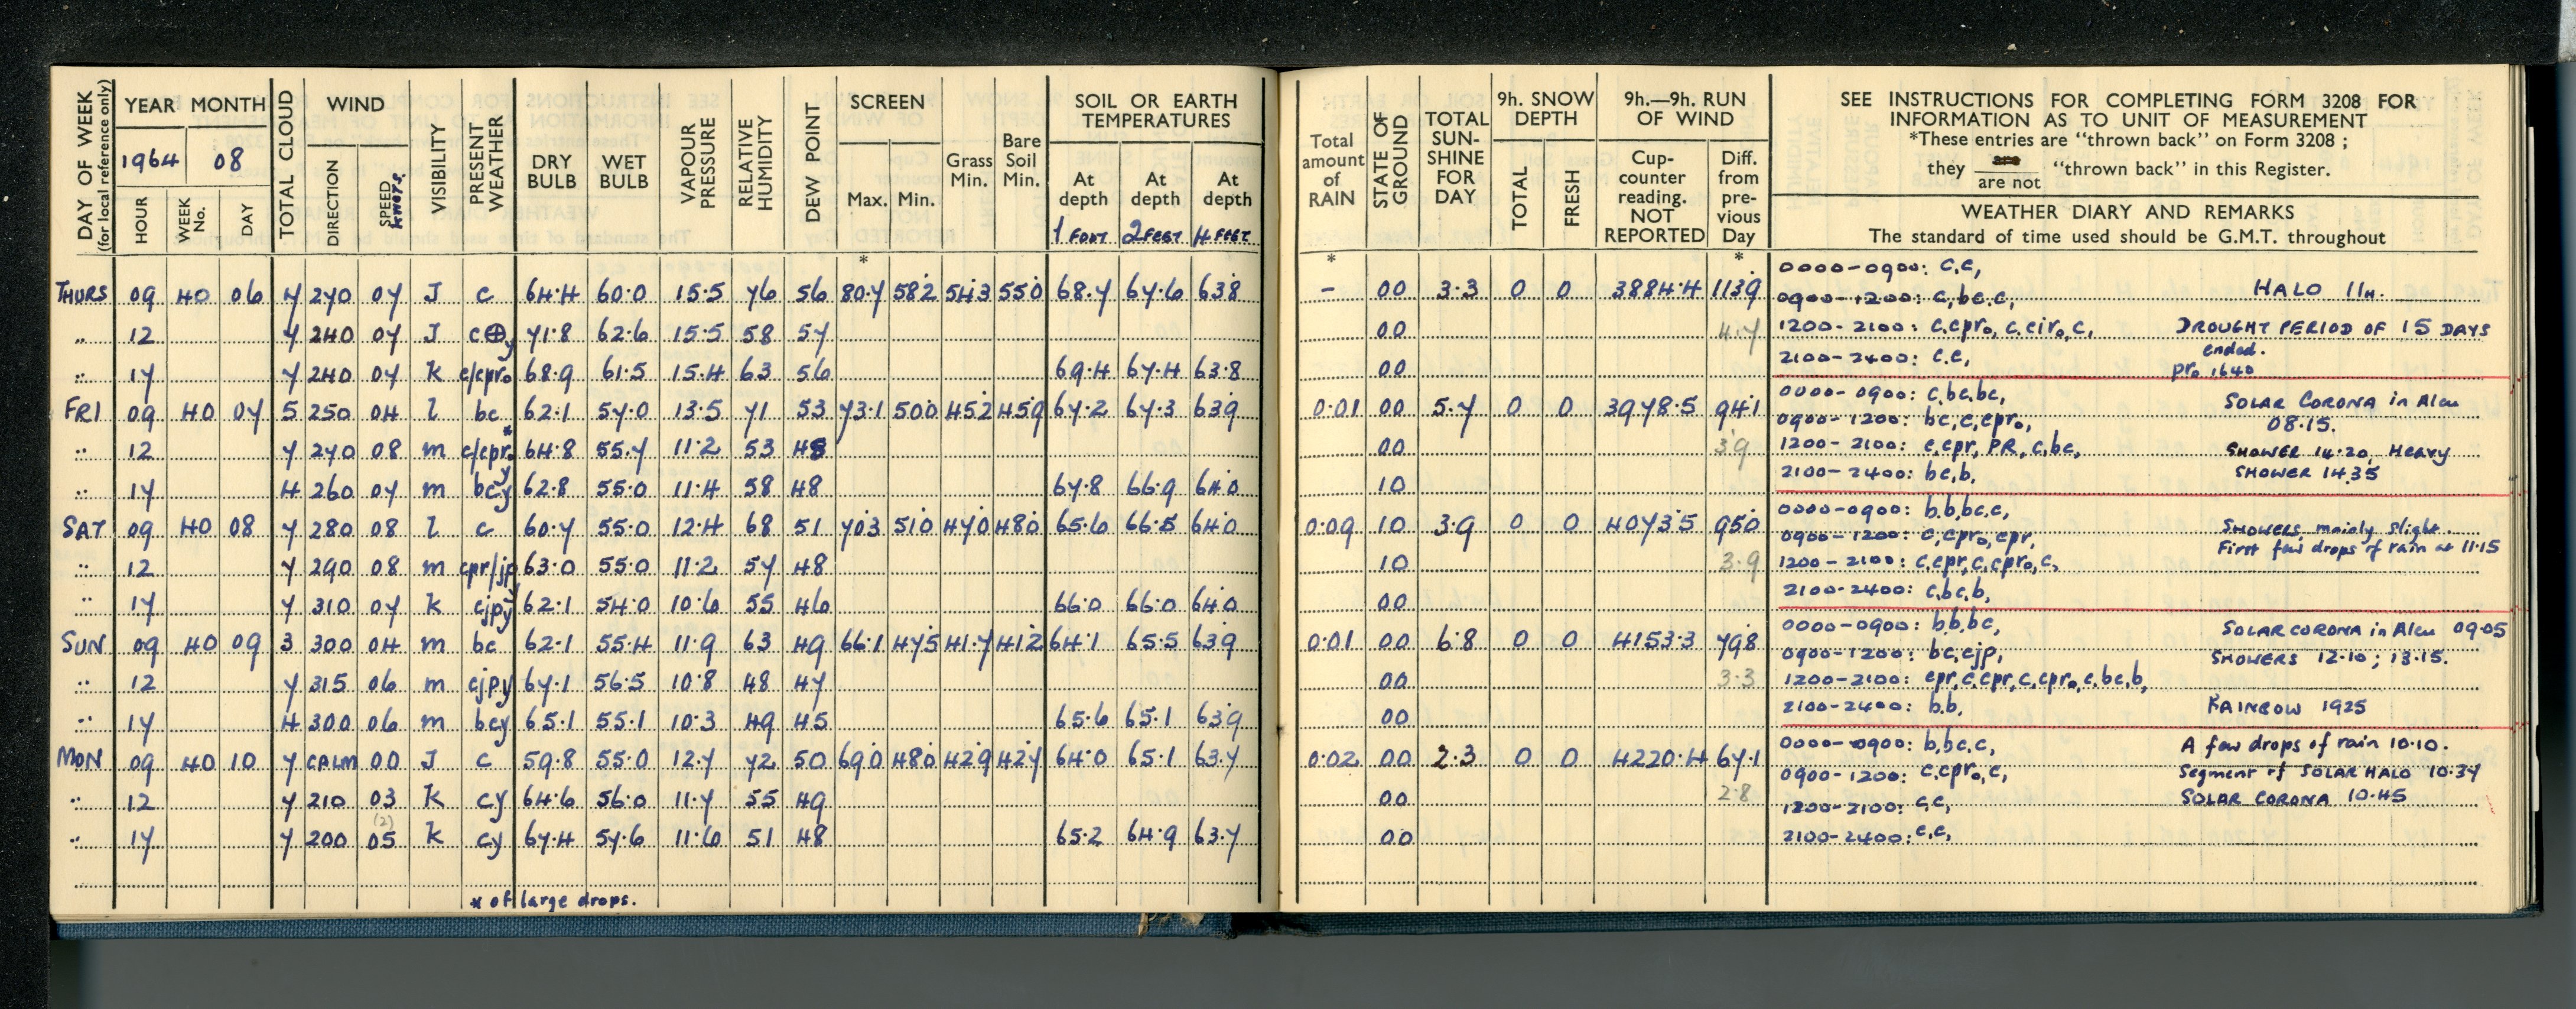 DAY OF WEEK
(for local reference only)
YEAR MONTH
1964 08
HOUR
WEEK No.
DAY
TOTAL CLOUD
WIND
DIRECTION
SPEED
KNOTS
VISIBILITY
PRESENT WEATHER
DRY BULB
WET BULB
VAPOUR PRESSURE
RELATIVE HUMIDITY
DEW POINT
SCREEN
Max. Min.
Grass Min.
Bare Soil Min.
SOIL OR EARTH TEMPERATURES
At depth 1 FOOT
At depth 2 FEET
At depth 4 FEET
*
THURS 09 40 06 7 270 07 J c 64.4 60.0 15.5 76 56 80.7 58.2 54.3 55.0 68.7 67.6 63.8
" 12 7 240 07 J c⊕y 71.8 62.6 15.5 58 57
" 17 7 240 07 k c/cpr₀ 68.9 61.5 15.4 63 56 69.4 67.4 63.8
FRI 09 40 07 5 250 04 l bc 62.1 57.0 13.5 71 53 73.1 50.0 45.2 45.9 67.2 67.3 63.9
" 12 7 270 08 m c/cpr* 64.8 55.7 11.2 53 48
" 17 4 260 07 m bcy 62.8 55.0 11.4 58 48 67.8 66.9 64.0
SAT 09 40 08 7 280 08 l c 60.7 55.0 12.4 68 51 70.3 51.0 47.0 48.0 65.6 66.5 64.0
" 12 7 290 08 m cpr/jp 63.0 55.0 11.2 57 48
" 17 7 310 07 k cjpy 62.1 54.0 10.6 55 46 66.0 66.0 64.0
SUN 09 40 09 3 300 04 m bc 62.1 55.4 11.9 63 49 66.1 47.5 41.7 41.2 64.1 65.5 63.9
" 12 7 315 06 m cjpy 67.1 56.5 10.8 48 47
" 17 4 300 06 m bcy 65.1 55.1 10.3 49 45 65.6 65.1 63.9
MON 09 40 10 7 CALM 00 J c 59.8 55.0 12.7 72 50 69.0 48.0 42.9 42.7 64.0 65.1 63.7
" 12 7 210 03 k cy 64.6 56.0 11.7 55 49
(2)
" 17 7 200 05 k cy 67.4 57.6 11.6 51 48 65.2 64.9 63.7
* of large drops.
Total amount of RAIN
STATE OF GROUND
TOTAL SUN-SHINE FOR DAY
9h. SNOW DEPTH
TOTAL
FRESH
9h.—9h. RUN OF WIND
Cup-counter reading. NOT REPORTED
Diff. from pre-vious Day
SEE INSTRUCTIONS FOR COMPLETING FORM 3208 FOR
INFORMATION AS TO UNIT OF MEASUREMENT
*These entries are "thrown back" on Form 3208 ;
they are / are not "thrown back" in this Register.
WEATHER DIARY AND REMARKS
The standard of time used should be G.M.T. throughout
* *
0000-0900: c,c,
- 00 3.3 0 0 3884.4 113.9
0900-1200: c,bc,c, HALO 11h.
00 4.7 1200-2100: c,cpr₀, c,cir₀,c, DROUGHT PERIOD OF 15 DAYS
ended.
00 2100-2400: c,c, pr₀ 1640
0000-0900: c,bc,bc,
0.01 00 5.7 0 0 3978.5 94.1 SOLAR CORONA in Alcu
0900-1200: bc,c,cpr₀, 08.15.
00 3.9 1200-2100: c,cpr, PR, c,bc, SHOWER 14.20, Heavy
10 2100-2400: bc,b, SHOWER 14.35
0000-0900: b,b,bc,c,
0.09 10 3.9 0 0 4073.5 95.0 Showers mainly slight.
0900-1200: c,cpr₀,cpr, First few drops of rain at 11.15
10 3.9 1200-2100: c,cpr,c,cpr₀,c,
00 2100-2400: c,bc,b,
0000-0900: b,b,bc, SOLAR CORONA in Alcu 09.05
0.01 00 6.8 0 0 4153.3 79.8
0900-1200: bc,cjp, SHOWERS 12.10; 13.15.
00 3.3 1200-2100: cpr,c,cpr,c,cpr₀,c,bc,b,
00 2100-2400: b,b, RAINBOW 1925
0000-0900: b,bc,c, A few drops of rain 10.10.
0.02 00 2.3 0 0 4220.4 67.1
0900-1200: c,cpr₀,c, Segment of SOLAR HALO 10.37
00 2.8 1200-2100: c,c, SOLAR CORONA 10.45
00 2100-2400: c,c,